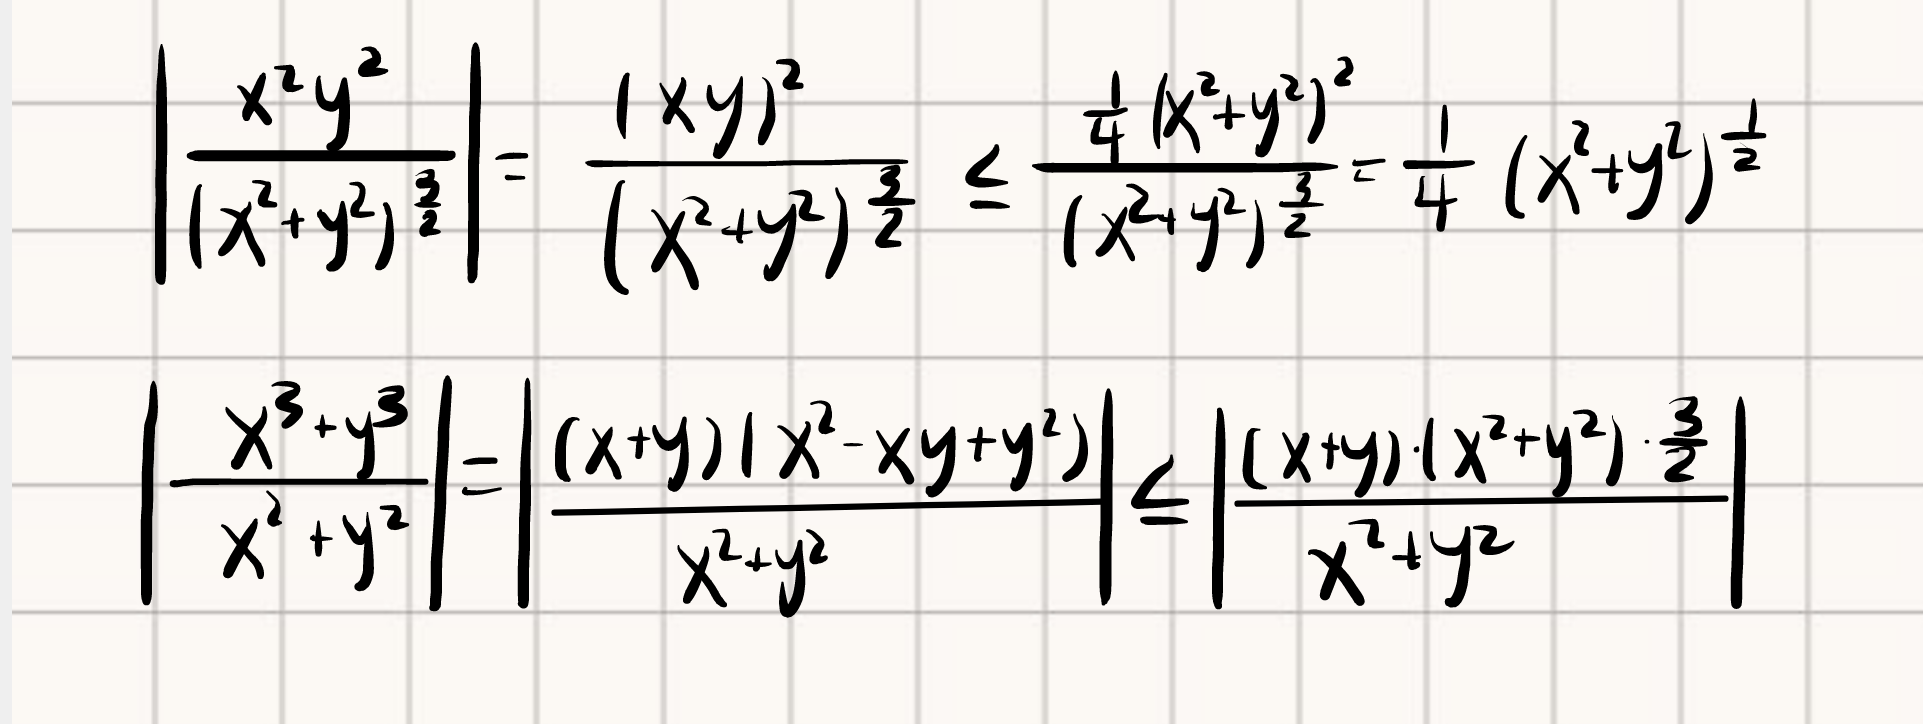 | x²y² / (x²+y²)^(3/2) | = (xy)² / (x²+y²)^(3/2) ≤ 1/4 (x²+y²)² / (x²+y²)^(3/2) = 1/4 (x²+y²)^(1/2)
| x³+y³ / x²+y² | = | (x+y)(x²-xy+y²) / x²+y² | ≤ | (x+y)·(x²+y²)·3/2 / x²+y² |